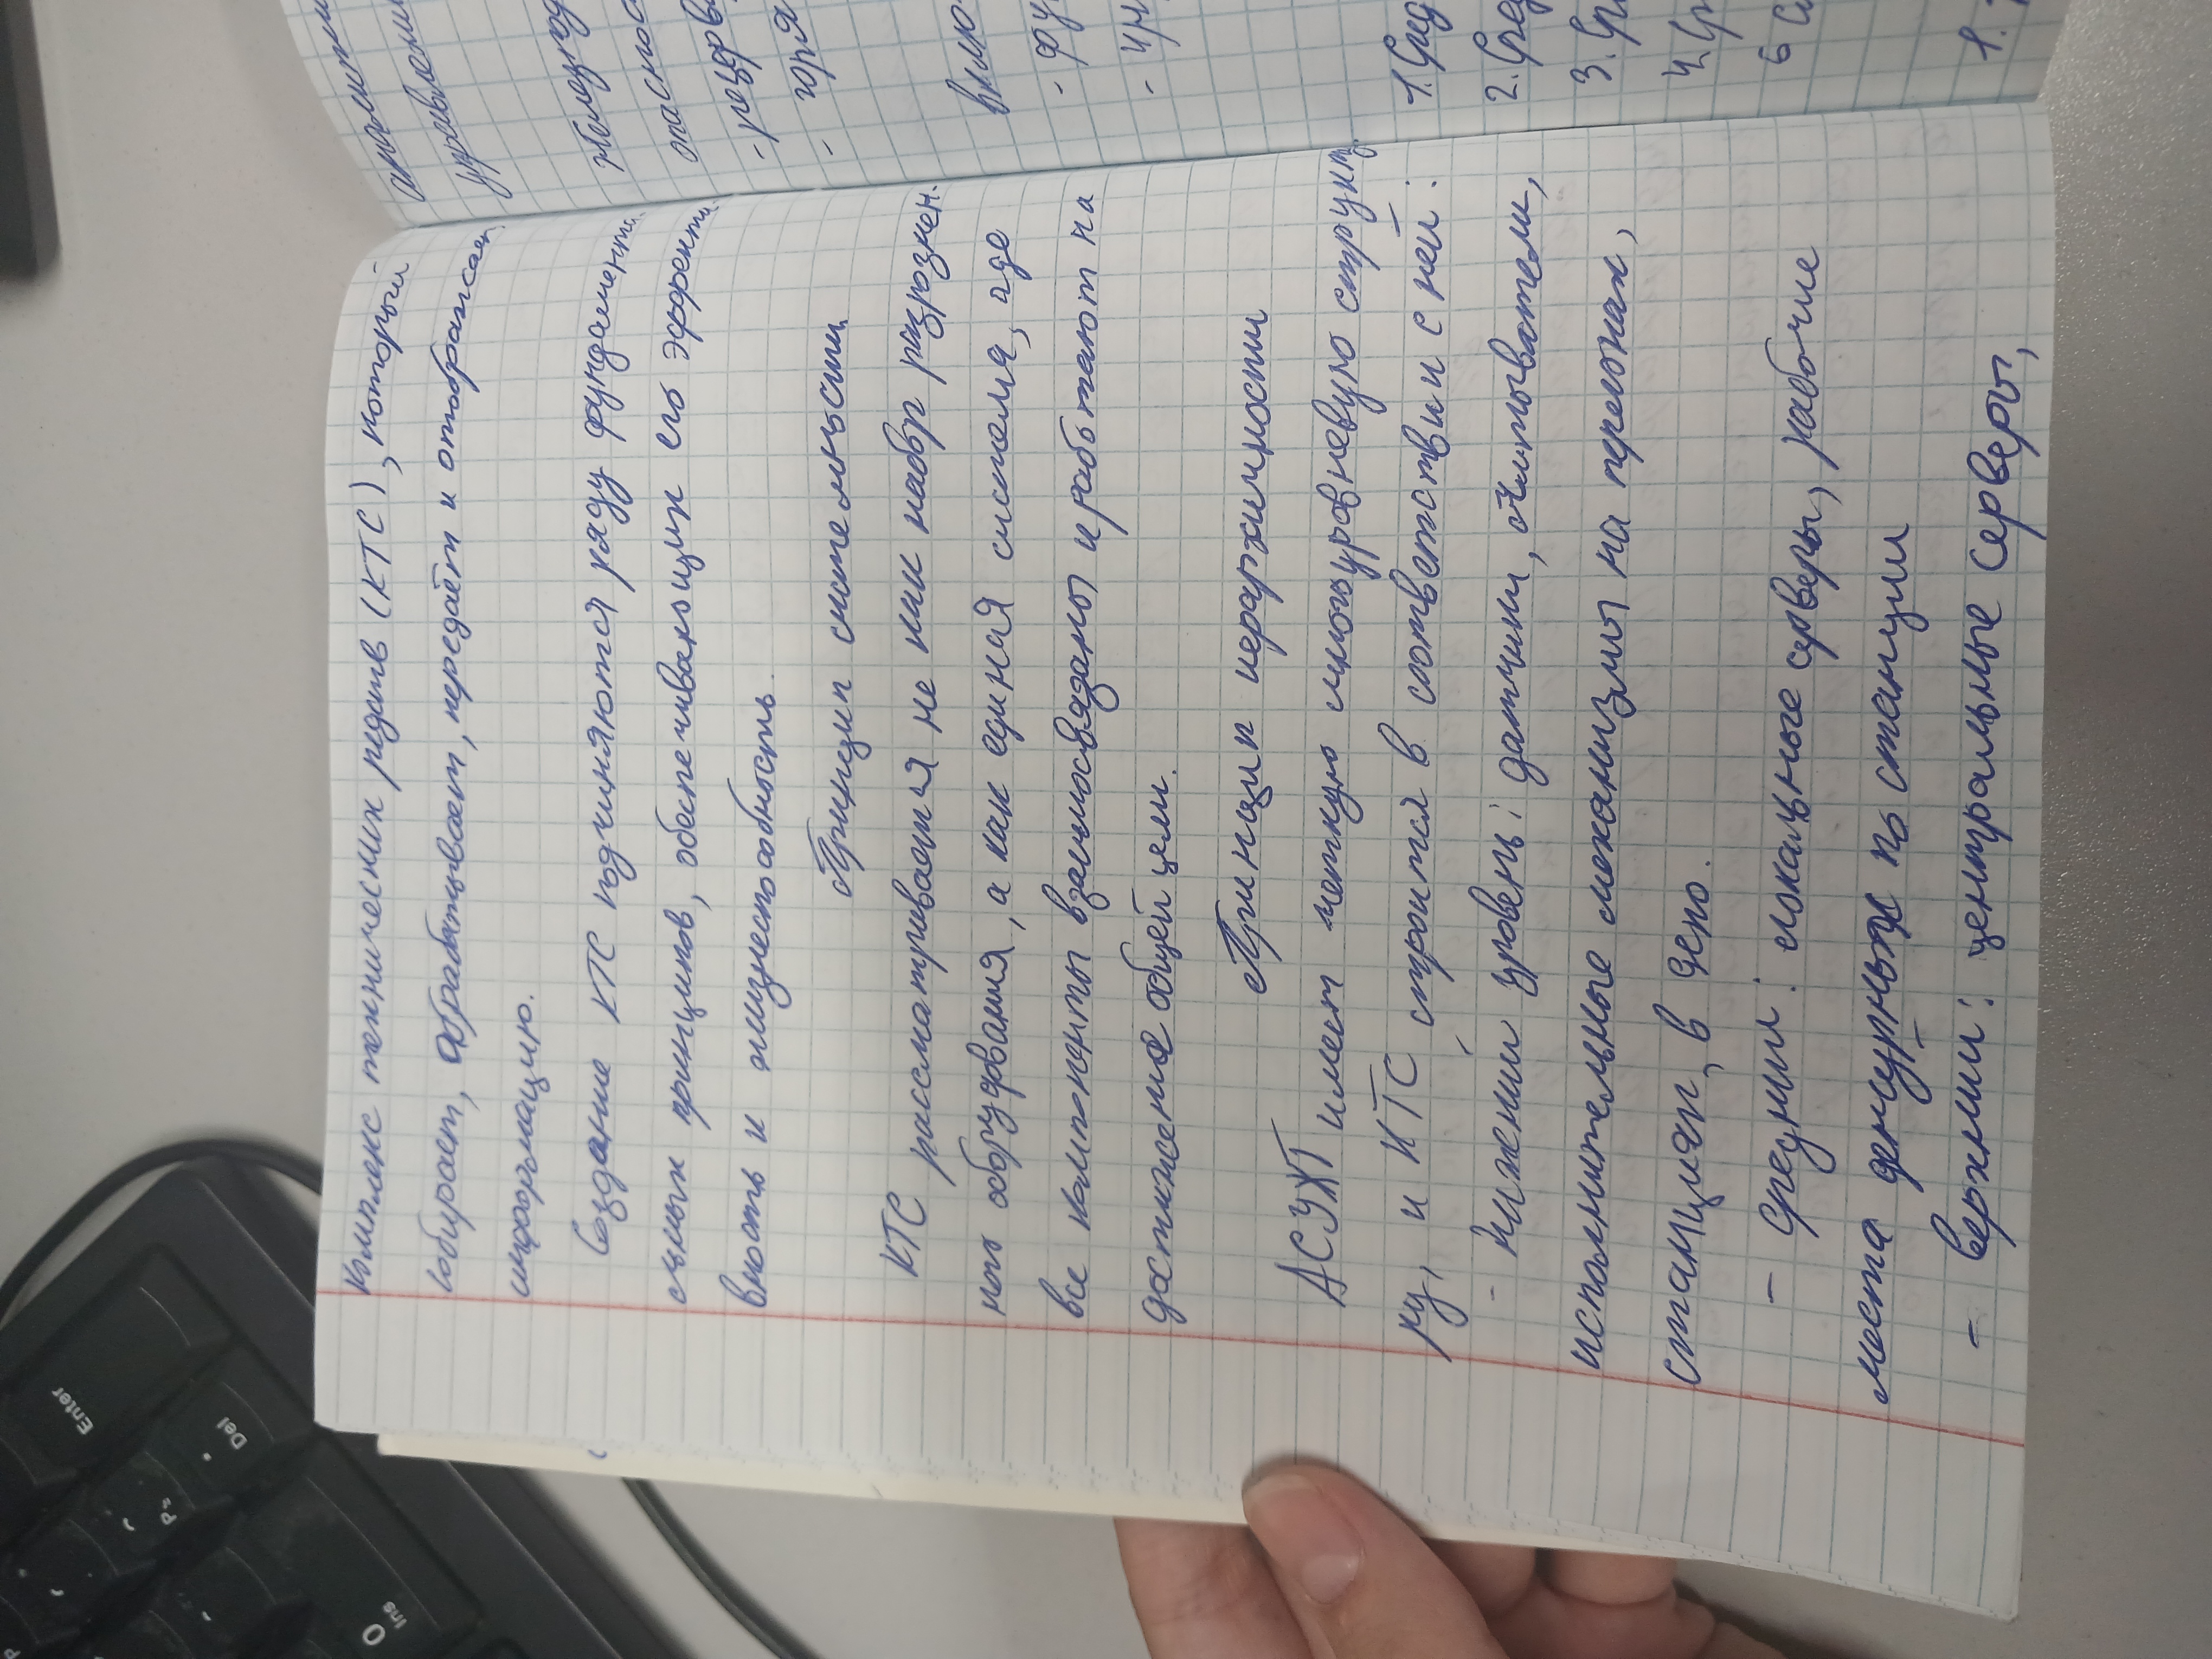 Комплекс технических редств (КТС), который
собирает, обрабатывает, передаёт и отображает
информацию.
Создание КТС подчиняются ряду фундамента
льных принципов, обеспечивающих его эффекти
вность и жизнеспособность.
Принцип системности
КТС рассматривается не как набор разрознен.
ного оборудования, а как единая система, где
все компоненты взаимосвязаны и работают на
достижение общей цели.
Принцип иерархичности
АСУЖТ имеет четкую многоуровневую структ
ру, и КТС строится в соответствии с ней:
- нижний уровень: датчики, считыватели,
исполнительные механизмы на перегонах,
станциях, в депо.
- средний: локальные серверы, рабочие
места дежурных по станции
- верхний: центральные серверы,
управлени
опаснос
- резерв
- горя
включ
- фу
1. Сред
2. Сред
3.
4.
6
1.
Enter
Del
Ins
0